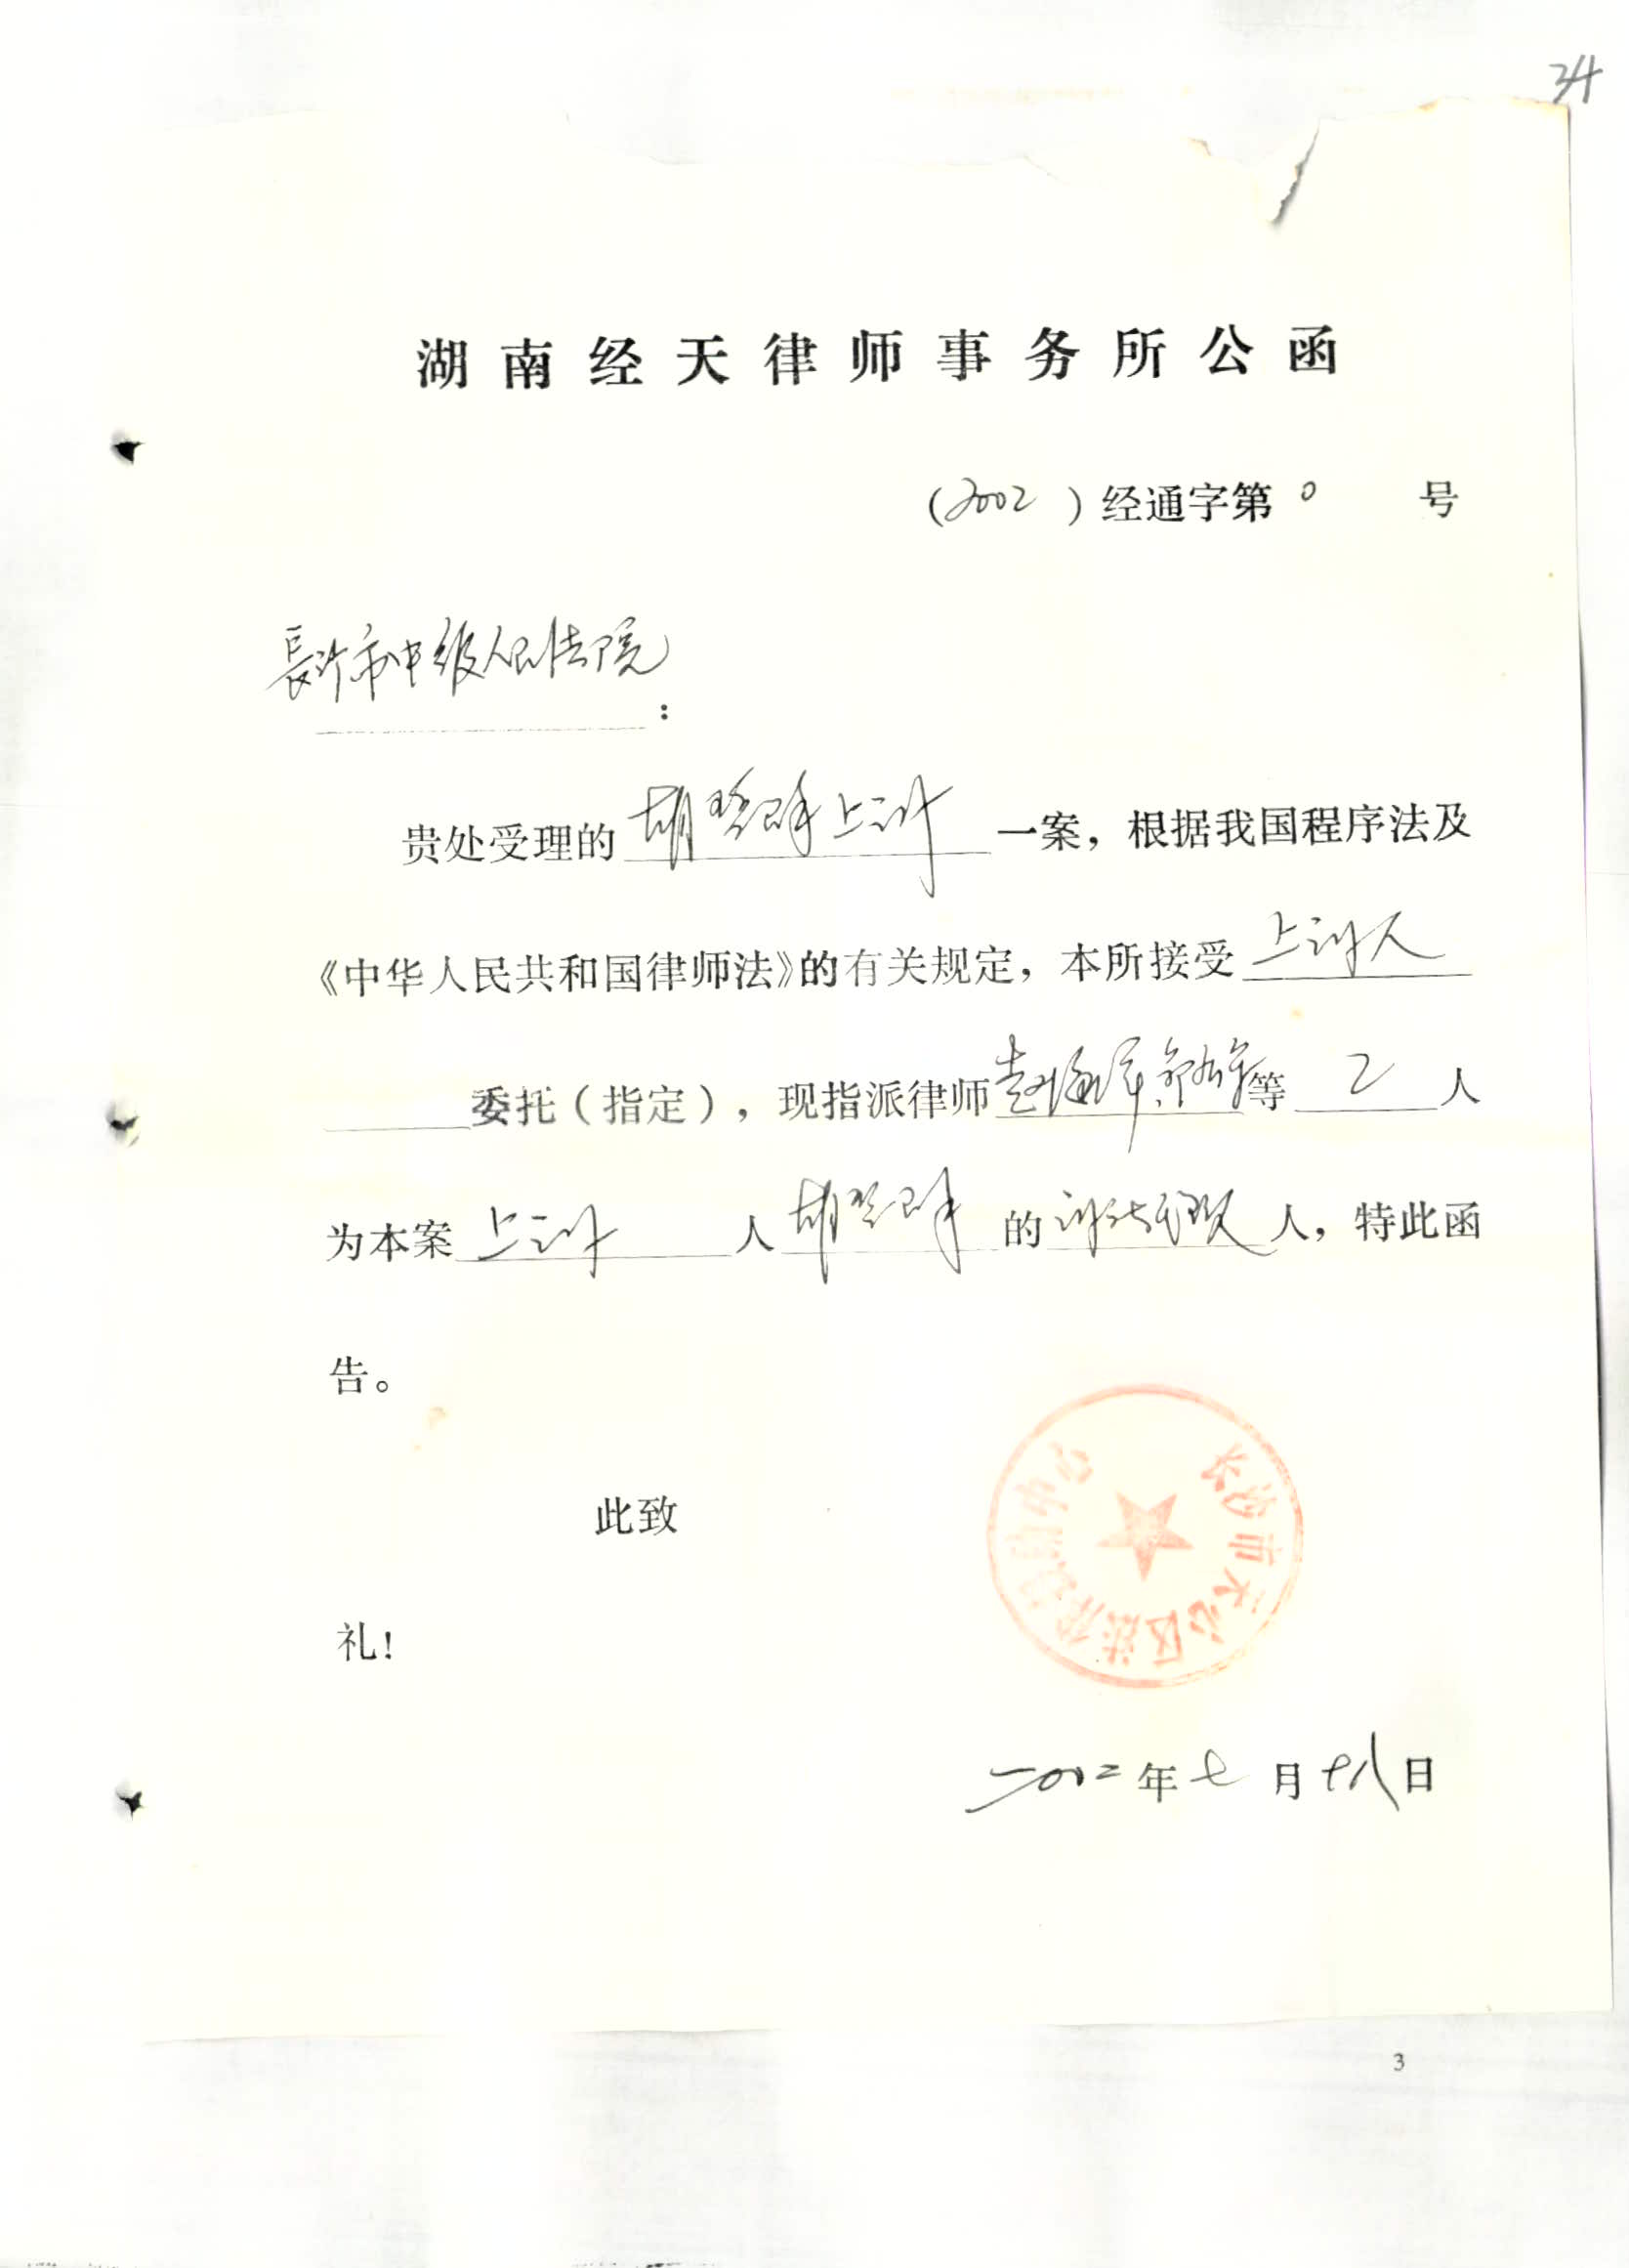 34
湖南经天律师事务所公函
(2002)经通字第0 号
長沙市中级人民法院
:
贵处受理的胡 群上诉一案，根据我国程序法及
《中华人民共和国律师法》的有关规定，本所接受上诉人
委托（指定），现指派律师 等2人
为本案上诉人胡 群的诉讼代理人，特此函
告。
此致
礼!
长沙市天心区法律援助中心
二00二年七月十八日
3